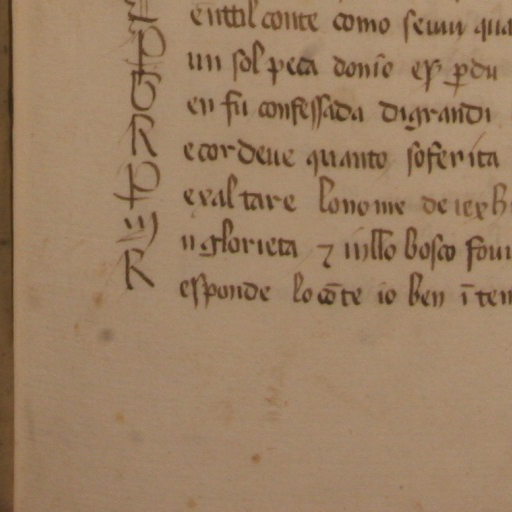 G enttil conte como seuui qua
P un sol peca donio esp perdu
G en fu confessada di grandi
R ecordeue quanto soferita
P exaltare lo nome de iex
I n glorieta ⁊ in llo bosco foui
R esponde lo cōte io ben ī ten